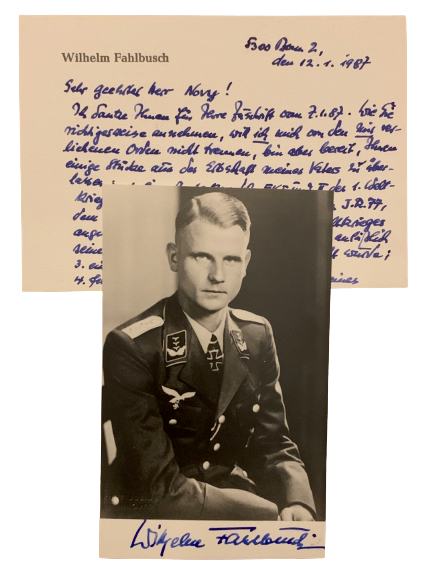 Wilhelm Fahlbusch
5300 Bonn 2,
den 12.1.1987
Sehr geehrter Herr Novy!
Ich danke Ihnen für Ihre Zuschrift vom 7.1.87. Wie Sie
richtigerweise annehmen, will ich mich von den mir ver-
liehenen Orden nicht trennen, bin aber bereit, Ihnen
einige Stücke aus der Erbschaft meines Vaters zu über-
lassen
II der 1. Welt-
krieg J.R. 77,
dem krieges
anläßlich
seine wurde;
3. ei
4.
Wilhelm Fahlbusch